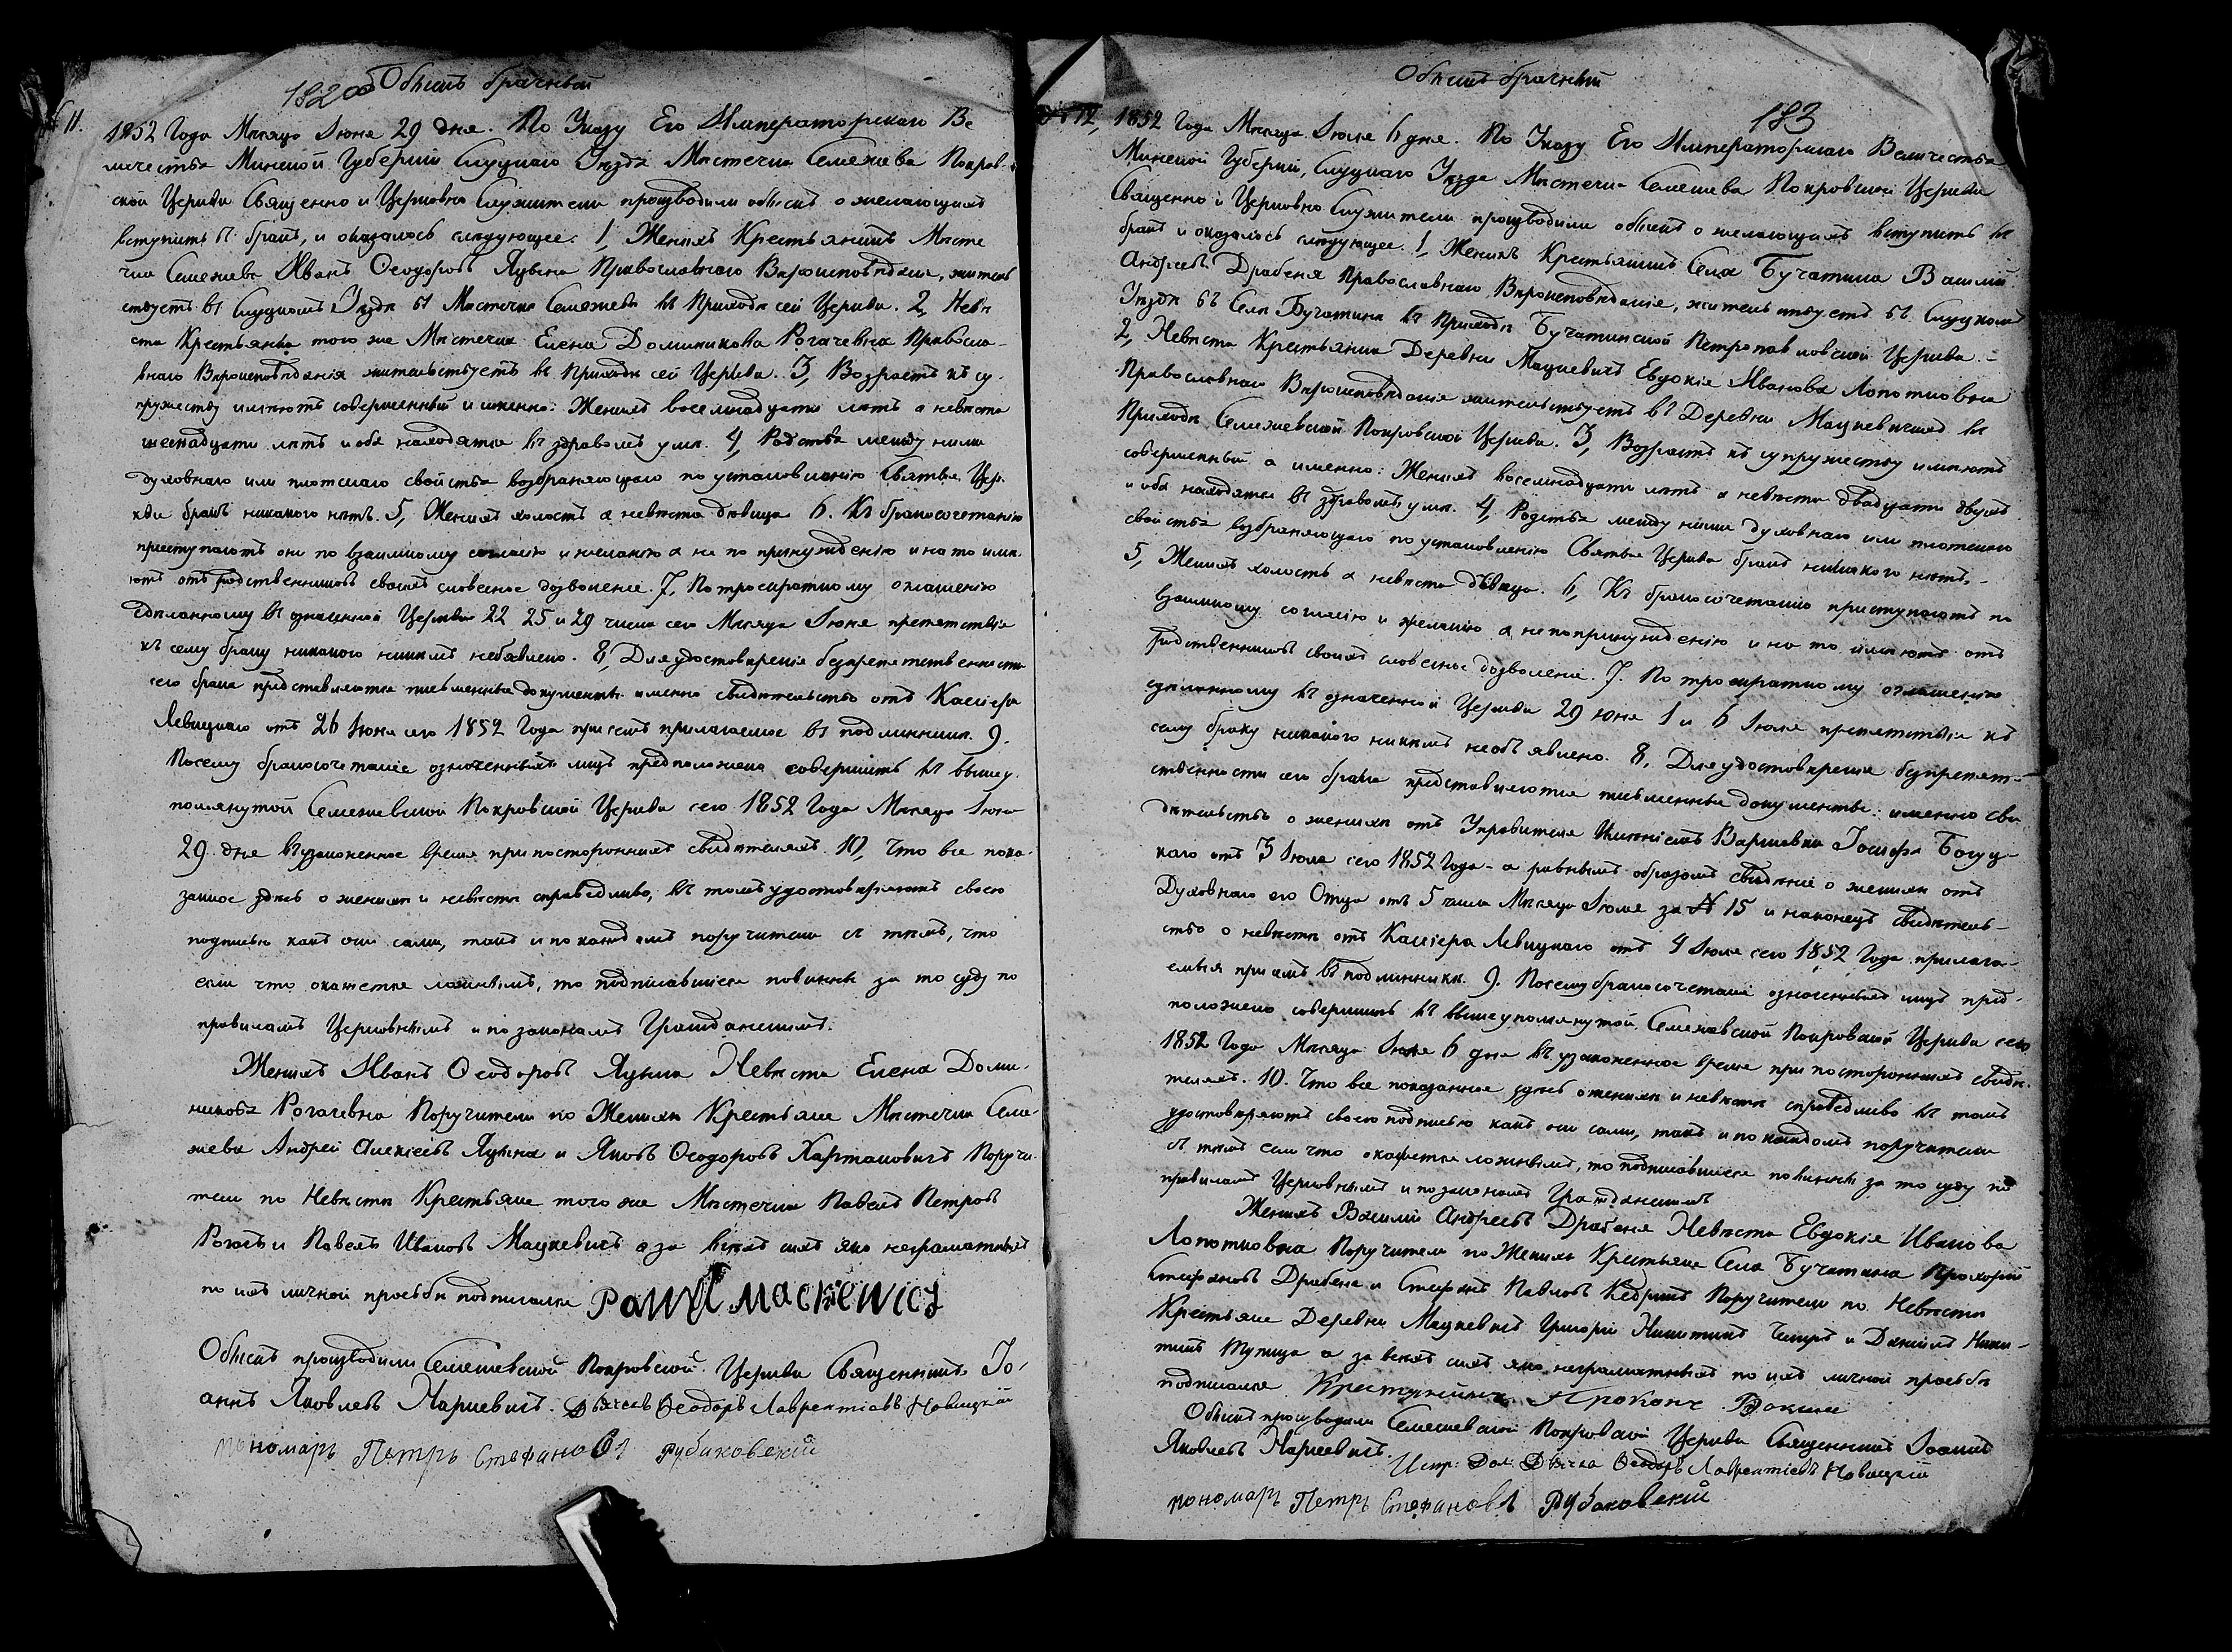 182об Обыскъ брачный
№ 11. 1852 Года Мѣсяца Іюня 29 дня. По Указу Его Императорскаго Ве
личества Минской Губерніи Слуцкаго Уѣзда Мѣстечка Семежева Покров-
ской Церкви Священно и Церковно Служители производили обыскъ о желающихъ
вступить въ бракъ, и оказалось слѣдующее. 1, Женихъ Крестьянинъ Мѣсте
чка Семежева Иванъ Ѳеодоровъ Яцына Православнаго Вѣроисповѣданія, житель
ствуетъ въ Слуцкомъ Уѣздѣ въ Мѣстечкѣ Семежевѣ въ Приходѣ сей Церкви. 2, Невѣ
ста Крестьянка того же Мѣстечка Елена Доминикова Рогачевна Правосла-
внаго Вѣроисповѣданія жительствуетъ въ Приходѣ сей Церкви. 3, Возрастъ къ су-
пружеству имѣютъ совершенный и именно: Женихъ восемнадцати лѣтъ а невѣста
шеснадцати лѣтъ и оба находятся въ здравомъ умѣ. 4, Родства между ними
духовнаго или плотскаго свойства возбраняющаго по установленію Святыя Цер-
кви бракъ никакого нѣтъ. 5, Женихъ холостъ а невѣста дѣвица 6. Къ бракосочетанію
приступаютъ они по взаимному согласію и желанію а не по принужденію и на то имѣ-
ютъ отъ родственниковъ своихъ словесное дозволеніе. 7, По троекратному оглашенію
сдѣланному въ означенной Церкви 22 25 и 29 числа сего Мѣсяца Іюня препятствія
къ сему браку никакого никѣмъ необъявлено. 8, Для удостовѣренія безпрепятственности
сего брака представляются письменные документы именно свидѣтельство отъ Кассіера
Левицкаго отъ 26 Іюня сего 1852 Года при семъ прилагаемое въ подлинникѣ. 9.
Посему бракосочетаніе означенныхъ лицъ предположено совершить въ вышеу-
помянутой Семежевской Покровской Церкви сего 1852 Года Мѣсяца Іюня
29 дня въ узаконенное время при постороннихъ свидѣтеляхъ. 10, Что все пока-
занное здѣсь о женихѣ и невѣстѣ справедливо, въ томъ удостовѣряютъ своею
подписью какъ они сами, такъ и по каждомъ поручители съ тѣмъ, что
если что окажется ложнымъ, то подписавшіеся повинны за то суду по
правиламъ Церковнымъ и по законамъ Гражданскимъ.
Женихъ Иванъ Ѳеодоровъ Яцына Невѣста Елена Доми-
никова Рогачевна Поручители по Женихѣ Крестьяне Мѣстечка Семе-
жева Андрей Алексѣевъ Яцына и Яковъ Ѳеодоровъ Хартановичъ Поручи-
тели по Невѣстѣ Крестьяне того же Мѣстечка Павелъ Петровъ
Рогачъ и Павелъ Ивановъ Мацкевичъ а за всѣхъ ихъ яко неграматныхъ
по ихъ личной просьбѣ подписался Pawel Mackiewicz
Обыскъ производили Семежевской Покровской Церкви Священникъ Іо-
аннъ Яковлевъ Нарцевичъ. Дьячекъ Ѳеодоръ Лаврентіевъ Новицкій
пономарь Петръ Стефановъ Рубановскій
Обыскъ брачный
183
№ 12, 1852 Года Мѣсяца Іюля 6 дня. По Указу Его Императорскаго Величества
Минской Губерніи, Слуцкаго Уѣзда Мѣстечка Семежева Покровской Церкви
Священно и Церковно Служители производили обыскъ о желающихъ вступить въ
бракъ и оказалось слѣдующее. 1, Женихъ Крестьянинъ Села Бучатина Василій
Андреевъ Драбеня Православнаго Вѣроисповѣданія, жительствуетъ въ Слуцкомъ
Уѣздѣ въ Селѣ Бучатинѣ въ Приходѣ Бучатинской Петропавловской Церкви. -
2, Невѣста Крестьянка Деревни Мацкевичъ Евдокія Иванова Лопотковна
Православнаго Вѣроисповѣданія жительствуетъ въ Деревни Мацкевичахъ въ
Приходѣ Семежевской Покровской Церкви. 3, Возрастъ къ супружеству имѣютъ
совершенный а именно: Женихъ восемнадцати лѣтъ а невѣста двадцати двухъ
и оба находятся въ здравомъ умѣ. 4, Родства между ними духовнаго или плотскаго
свойства возбраняющаго по установленію Святыя Церкви бракъ никакого нѣтъ.-
5, Женихъ холостъ а невѣста дѣвица. 6, Къ бракосочетанію приступаютъ по
взаимному согласію и желанію а не по принужденію и на то имѣютъ отъ
родственниковъ своихъ словесное дозволеніе. 7. По троекратному оглашенію
сдѣланному въ означенной Церкви 29 Юня 1 и 6 Іюля препятствія къ
сему браку никакого никѣмъ необъявлено. 8, Для удостовѣренія безпрепят-
ственности сего брака представляются письменные документы: именно сви
дѣтельство о женихѣ отъ Управителя Іосифа Богуц-
каго отъ 3 Іюля сего 1852 Года - а равнымъ образомъ свидѣніе о женихѣ отъ
Духовнаго его Отца отъ 5 числа Мѣсяца Іюля за № 15 и наконецъ свидѣтель-
ство о невѣстѣ отъ Кассіера Левицкаго отъ 4 Іюля сего 1852 Года прилага-
емыя при семъ въ подлинникѣ. 9. Посему бракосочетаніе означенныхъ лицъ пред-
положено совершить въ вышеупомянутой Семежевской Покровской Церкви сего
1852 Года Мѣсяца Іюля 6 дня въ узаконенное время при постороннихъ свидѣ-
теляхъ. 10. Что все показанное здѣсь о женихѣ и невѣстѣ справедливо въ томъ
удостовѣряютъ своею подписью какъ они сами, такъ и по каждомъ поручители
съ тѣмъ если что окажется ложнымъ, то подписавшіеся повинны за то суду по
правиламъ Церковнымъ и по законамъ Гражданскимъ
Женихъ Василій Андреевъ Драбеня Невѣста Евдокія Иванова
Лопотковна Поручители по Женихѣ Крестьяне Села Бучатина Прохорій
Стефановъ Драбеня и Стефанъ Павловъ Кедринъ Поручители по Невѣстѣ
Крестьяне Деревни Мацкевичъ Григорій Никитинъ и Даніилъ Ники-
тинъ Тупица а за всѣхъ ихъ яко неграматныхъ по ихъ личной просьбѣ
подписался Крестьянинъ Прокопъ
Обыскъ производили Семежевской Покровской Церкви Священникъ Іоаннъ
Яковлевъ Нарцевичъ. Испр: Дол: Дьячка Ѳеодоръ Лаврентіевъ Новицкій
пономарь Петръ Стефановъ Рубановскій